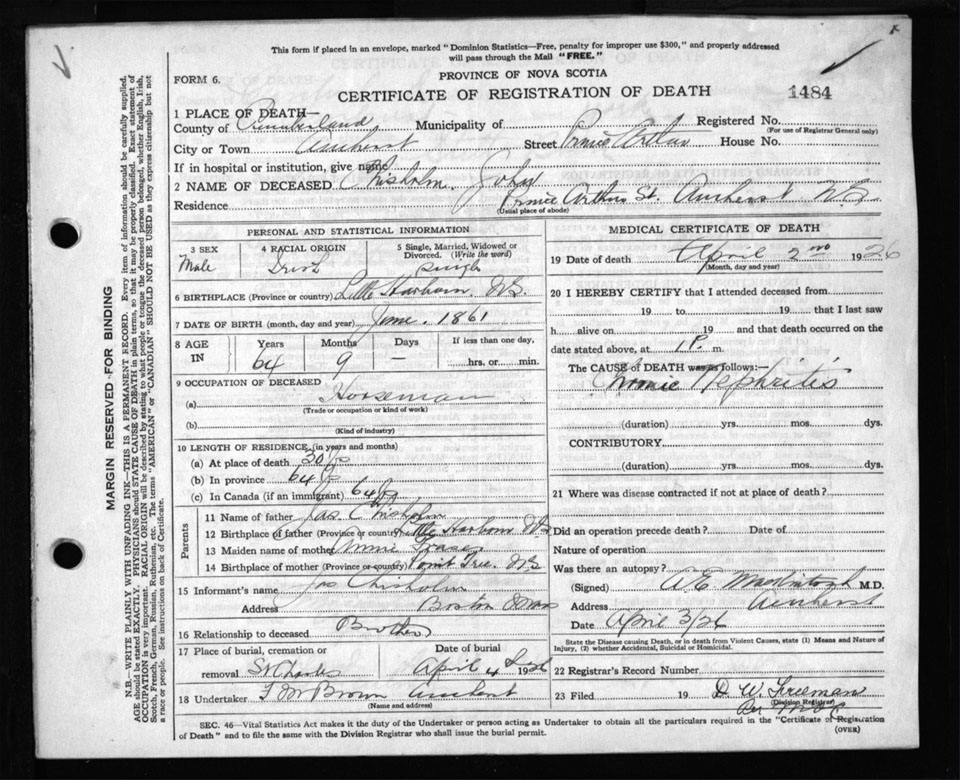 This form if placed in an envelope, marked "Dominion Statistics—Free, penalty for improper use $300," and properly addressed
will pass through the Mail "FREE."
FORM 6.
PROVINCE OF NOVA SCOTIA
CERTIFICATE OF REGISTRATION OF DEATH
1484
1 PLACE OF DEATH—
County of Cumberland Municipality of Registered No.
(For use of Registrar General only)
City or Town Amherst Street Prince Arthur House No.
If in hospital or institution, give name
2 NAME OF DECEASED Chisholm. John
Residence Prince Arthur St. Amherst N.S.
(Usual place of abode)
PERSONAL AND STATISTICAL INFORMATION
3 SEX 4 RACIAL ORIGIN 5 Single, Married, Widowed or
Divorced. (Write the word)
Male Irish Single
6 BIRTHPLACE (Province or country) Little Harbour. NS.
7 DATE OF BIRTH (month, day and year) June. 1861
8 AGE IN Years Months Days If less than one day,
64 9 — hrs. or min.
9 OCCUPATION OF DECEASED
(a) Horseman
(Trade or occupation or kind of work)
(b)
(Kind of industry)
10 LENGTH OF RESIDENCE (in years and months)
(a) At place of death 30
(b) In province 64
(c) In Canada (if an immigrant) 64
Parents
11 Name of father Jas Chisholm
12 Birthplace of father (Province or country) Little Harbour NS
13 Maiden name of mother Annie
14 Birthplace of mother (Province or country) NS
15 Informant's name Jas Chisholm
Address Boston Mass
16 Relationship to deceased Brother
17 Place of burial, cremation or removal Date of burial
St Charles April 4 1926
18 Undertaker Brown Amherst
(Name and address)
MEDICAL CERTIFICATE OF DEATH
19 Date of death April 2nd 1926
(Month, day and year)
20 I HEREBY CERTIFY that I attended deceased from
19 to 19 that I last saw
h alive on 19 and that death occurred on
date stated above, at 1 P. m.
The CAUSE OF DEATH was as follows:—
Chronic Nephritis
(duration) yrs. mos. dys.
CONTRIBUTORY
(duration) yrs. mos. dys.
21 Where was disease contracted if not at place of death?
Did an operation precede death? Date of
Nature of operation
Was there an autopsy?
(Signed) A.E. MacKintosh M.D.
Address Amherst
Date April 3/26
State the Disease causing Death, or in death from Violent Causes, state (1) Means and Nature of
Injury, (2) whether Accidental, Suicidal or Homicidal.
22 Registrar's Record Number
23 Filed 19 D. W. Freeman
(Division Registrar)
SEC. 46—Vital Statistics Act makes it the duty of the Undertaker or person acting as Undertaker to obtain all the particulars required in the "Certificate of Registration
of Death" and to file the same with the Division Registrar who shall issue the burial permit.
(OVER)
MARGIN RESERVED FOR BINDING
N.B.—WRITE PLAINLY WITH UNFADING INK—THIS IS A PERMANENT RECORD. Every item of information should be carefully supplied.
AGE should be stated EXACTLY. PHYSICIANS should STATE CAUSE OF DEATH in plain terms, so that it may be properly classified. Exact statement of
OCCUPATION is very important. RACIAL ORIGIN will be described by stating to what people or tongue the deceased person belonged, whether English, Irish,
Scotch, French, German, Russian, Ruthenian, etc. The terms "AMERICAN" or "CANADIAN" SHOULD NOT BE USED as they express citizenship but not
a race or people. See instructions on back of Certificate.